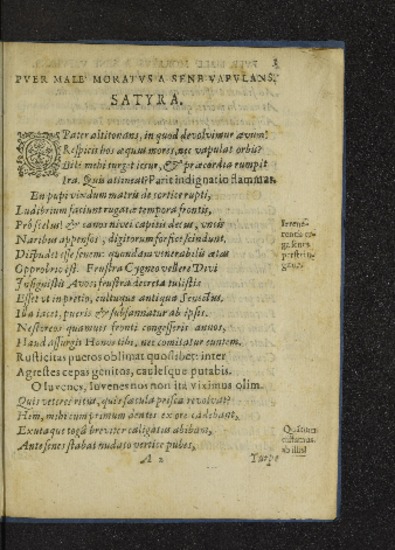 PVER MALE MORATVS A SENE VAPVLANS,
SATYRA.
O Pater altitonans, in quod devolvimur ævum?
Respicis hos æquus mores, nec vapulat orbis?
Bile mihi turget iecur, & præcordia rumpit
Ira. Quis attineat? Parit indignatio flammas.
En pupi vixdum matris de cortice rupti,
Ludibrium faciunt rugatæ tempora frontis,
Pro scelus! & canos nivei capitis decus, vncis
Naribus appensos, digitorum forfice scindunt.
Dispudet esse senem: quondam venerabilis ætas
Opprobrio est. Frustra Cygneo vellere Divi
Insignistis Avos: frustra decreta tulistis
Esset vt in pretio, cultuque antiqua Senectus.
Illa iacet, pueris & subsannatur ab ipsis.
Nestoreos quamuis fronti congesseris annos,
Haud assurgit Honos tibi, nec comitatur euntem.
Rusticitas pueros oblimat quoslibet: inter
Agrestes cepas genitos, caulesque putabis.
O Iuvenes, Iuvenes nos non ita viximus olim.
Quis veteres ritus, quis sæcula prisca revolvat?
Hem, mihi cum primum dentes ex ore cadebant,
Exutaque togâ breviter caligatus abibam,
Ante senes stabat nudato vertice pubes,
A 2
Turpe